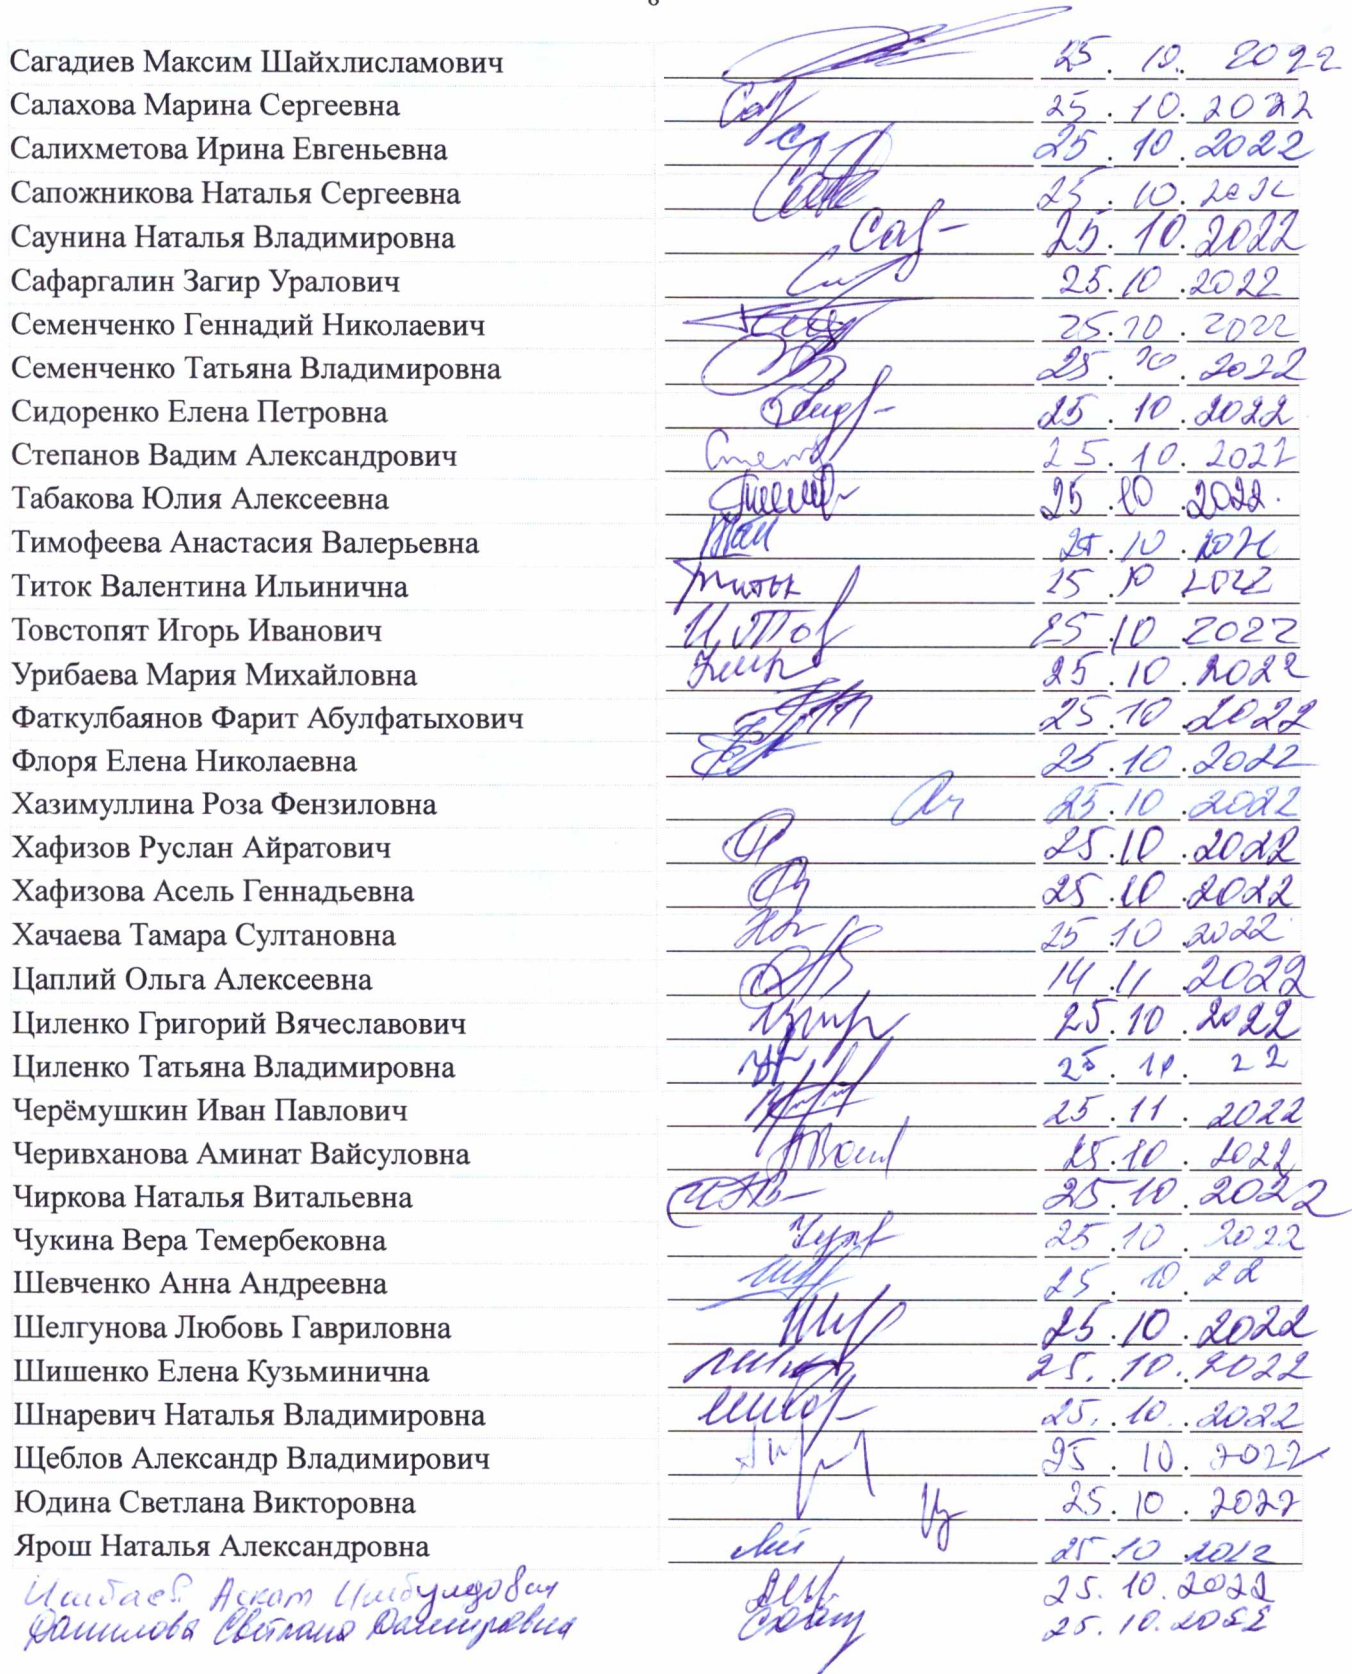 6
Сагадиев Максим Шайхлисламович 25. 10. 2022
Салахова Марина Сергеевна 25. 10. 2022
Салихметова Ирина Евгеньевна 25. 10. 2022
Сапожникова Наталья Сергеевна 25. 10. 2022
Саунина Наталья Владимировна 25. 10. 2022
Сафаргалин Загир Уралович 25. 10. 2022
Семенченко Геннадий Николаевич 25. 10. 2022
Семенченко Татьяна Владимировна 25. 10. 2022
Сидоренко Елена Петровна 25. 10. 2022
Степанов Вадим Александрович 25. 10. 2022
Табакова Юлия Алексеевна 25. 10. 2022.
Тимофеева Анастасия Валерьевна 25. 10. 2022
Титок Валентина Ильинична Титок 25. 10 2022
Товстопят Игорь Иванович 25. 10 2022
Урибаева Мария Михайловна 25. 10. 2022
Фаткулбаянов Фарит Абулфатыхович 25. 10. 2022
Флоря Елена Николаевна 25. 10. 2022
Хазимуллина Роза Фензиловна 25. 10. 2022
Хафизов Руслан Айратович 25. 10. 2022
Хафизова Асель Геннадьевна 25. 10. 2022
Хачаева Тамара Султановна 25. 10 2022
Цаплий Ольга Алексеевна 14. 11. 2022
Циленко Григорий Вячеславович 25. 10. 2022
Циленко Татьяна Владимировна 25. 10. 22
Черёмушкин Иван Павлович 25. 11. 2022
Черивханова Аминат Вайсуловна 25. 10. 2022
Чиркова Наталья Витальевна 25. 10. 2022
Чукина Вера Темербековна 25. 10. 2022
Шевченко Анна Андреевна 25. 10. 22
Шелгунова Любовь Гавриловна 25. 10. 2022
Шишенко Елена Кузьминична 25. 10. 2022
Шнаревич Наталья Владимировна 25. 10. 2022
Щеблов Александр Владимирович 25. 10. 2022
Юдина Светлана Викторовна 25. 10. 2022
Ярош Наталья Александровна 25. 10 2022
Аскат 25. 10. 2022
Данилова Светлана Дамировна 25. 10. 2022